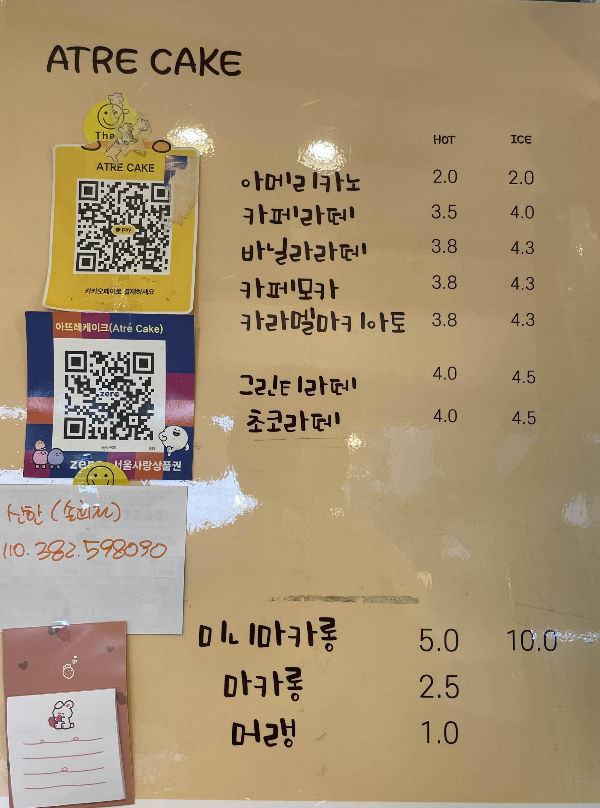 ATRE CAKE
Tha
ATRE CAKE
pay
카카오페이로 결제하세요
아뜨레케이크(Atré Cake)
zero
서울사랑상품권
신한
110. 382. 598090
HOT ICE
아메리카노 2.0 2.0
카페라떼 3.5 4.0
바닐라라떼 3.8 4.3
카페모카 3.8 4.3
카라멜마키아토 3.8 4.3
그린티라떼 4.0 4.5
초코라떼 4.0 4.5
미니마카롱 5.0 10.0
마카롱 2.5
머랭 1.0